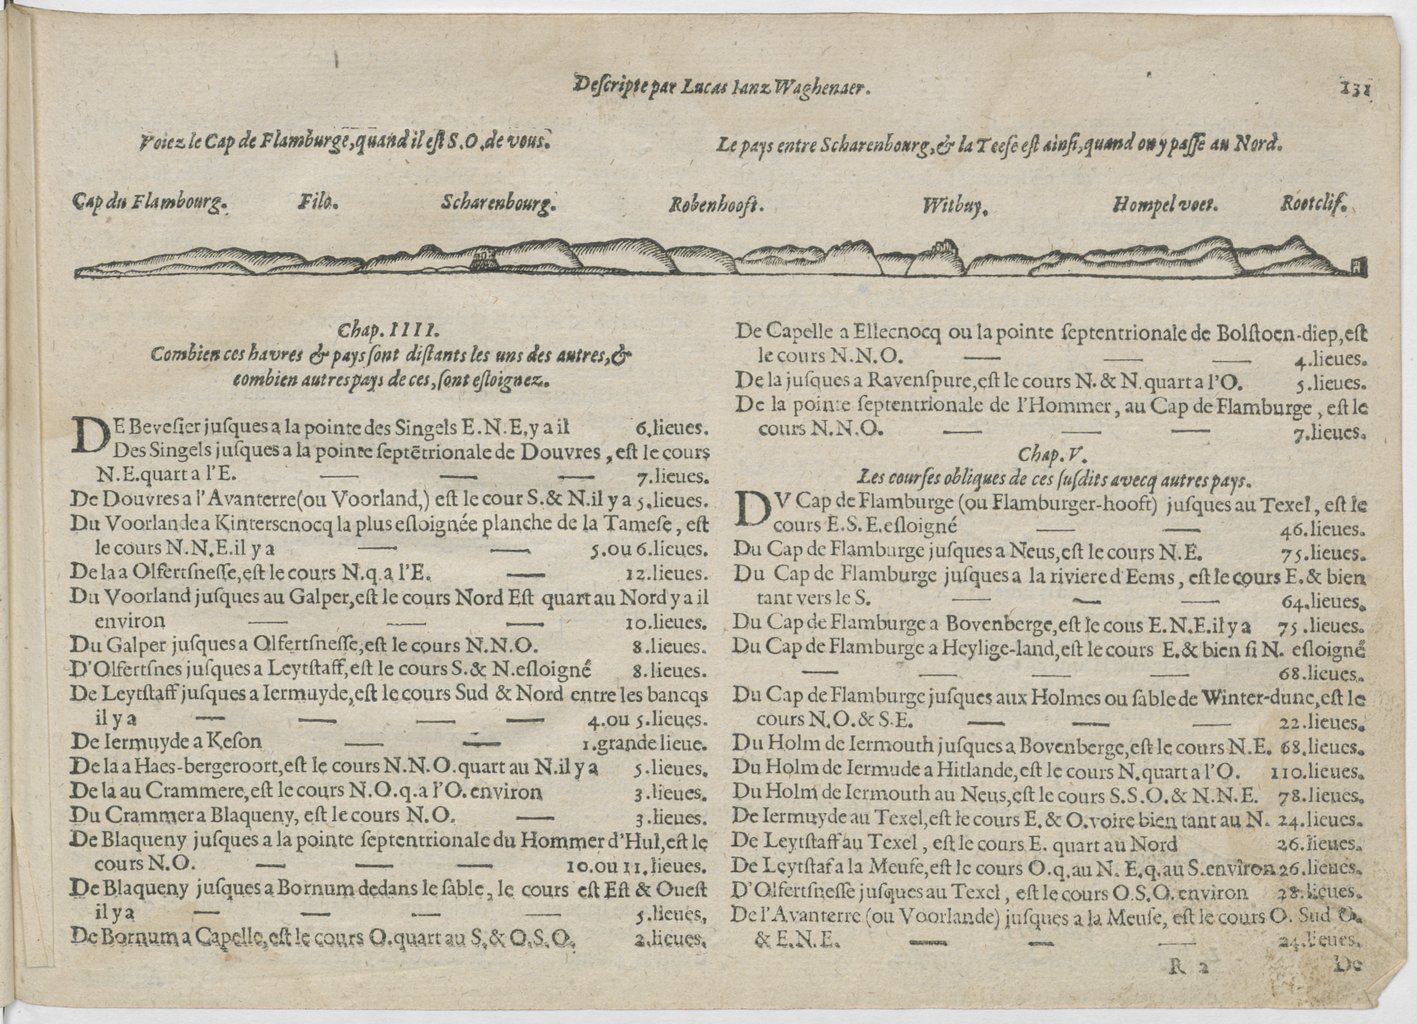 Descripte par Lucas Ianz Waghenaer.
131
Voiez le Cap de Flamburge, quand il eſt S.O.de vous.
Le pays entre Scharenbourg, & la Teeſe eſt ainſi, quand on y paſſe au Nord.
Cap du Flambourg. Filo. Scharenbourg. Robenhooft. Witbuy. Hompel voet. Rootclif.
Chap. IIII.
Combien ces havres & pays ſont diſtants les uns des autres, &
combien autres pays de ces, ſont eſloignez.
DE Beveſier juſques a la pointe des Singels E.N.E. y a il 6.lieues.
Des Singels juſques a la pointe ſeptētrionale de Douvres , eſt le cours
N.E.quart a l'E. — — — 7.lieues.
De Douvres a l'Avanterre(ou Voorland,) eſt le cour S.& N.il y a 5.lieues.
Du Voorlande a Kinterscnocq la plus eſloignée planche de la Tameſe , eſt
le cours N.N.E.il y a — — 5.ou 6.lieues.
De la a Olfertſneſſe,eſt le cours N.q.a l'E. — 12.lieues.
Du Voorland juſques au Galper,eſt le cours Nord Eſt quart au Nord y a il
environ — — — 10.lieues.
Du Galper juſques a Olfertſneſſe,eſt le cours N.N.O. 8.lieues.
D'Olfertſnes juſques a Leytſtaff,eſt le cours S.& N.eſloigné 8.lieues.
De Leytſtaff juſques a Iermuyde,eſt le cours Sud & Nord entre les bancqs
il y a — — — — 4.ou 5.lieues.
De Iermuyde a Keſon — — 1.grande lieue.
De la a Haes-bergeroort,eſt le cours N.N.O.quart au N.il y a 5.lieues.
De la au Crammere,eſt le cours N.O.q.a l'O.environ 3.lieues.
Du Crammer a Blaqueny, eſt le cours N.O. — 3.lieues.
De Blaqueny juſques a la pointe ſeptentrionale du Hommer d'Hul,eſt le
cours N.O. — — — 10.ou 11.lieues.
De Blaqueny juſques a Bornum dedans le ſable, le cours eſt Eſt & Oueſt
il y a — — — — 5.lieues,
De Bornum a Capelle,eſt le cours O.quart au S.& O.S.O. 2.lieues.
De Capelle a Ellecnocq ou la pointe ſeptentrionale de Bolſtoen-diep,eſt
le cours N.N.O. — — — 4.lieues.
De la juſques a Ravenſpure,eſt le cours N.& N.quart a l'O. 5.lieues.
De la pointe ſeptentrionale de l'Hommer, au Cap de Flamburge , eſt le
cours N.N.O. — — — 7.lieues.
Chap. V.
Les courſes obliques de ces ſuſdits avecq autres pays.
DV Cap de Flamburge (ou Flamburger-hooft) juſques au Texel, eſt le
cours E.S.E.eſloigné — — 46.lieues.
Du Cap de Flamburge juſques a Neus,eſt le cours N.E. 75.lieues.
Du Cap de Flamburge juſques a la riviere d'Eems, eſt le cours E.& bien
tant vers le S. — — — 64.lieues.
Du Cap de Flamburge a Bovenberge,eſt le cous E.N.E.il y a 75.lieues.
Du Cap de Flamburge a Heylige-land,eſt le cours E.& bien ſi N. eſloigné
— — — — 68.lieues.
Du Cap de Flamburge juſques aux Holmes ou ſable de Winter-dune,eſt le
cours N.O.& S.E. — — — 22.lieues.
Du Holm de Iermouth juſques a Bovenberge,eſt le cours N.E. 68.lieues.
Du Holm de Iermude a Hitlande,eſt le cours N.quart a l'O. 110.lieues.
Du Holm de Iermouth au Neus,eſt le cours S.S.O.& N.N.E. 78.lieues.
De Iermuyde au Texel,eſt le cours E.& O.voire bien tant au N. 24.lieues.
De Leytſtaff au Texel , eſt le cours E. quart au Nord 26.lieues.
De Leytſtaf a la Meuſe,eſt le cours O.q.au N. E.q.au S.environ 26.lieues.
D'Olfertſneſſe juſques au Texel , eſt le cours O.S.O. environ 28.lieues.
De l'Avanterre (ou Voorlande) juſques a la Meuſe, eſt le cours O. Sud O.
& E.N.E. — — — 24.lieues.
R 2 De